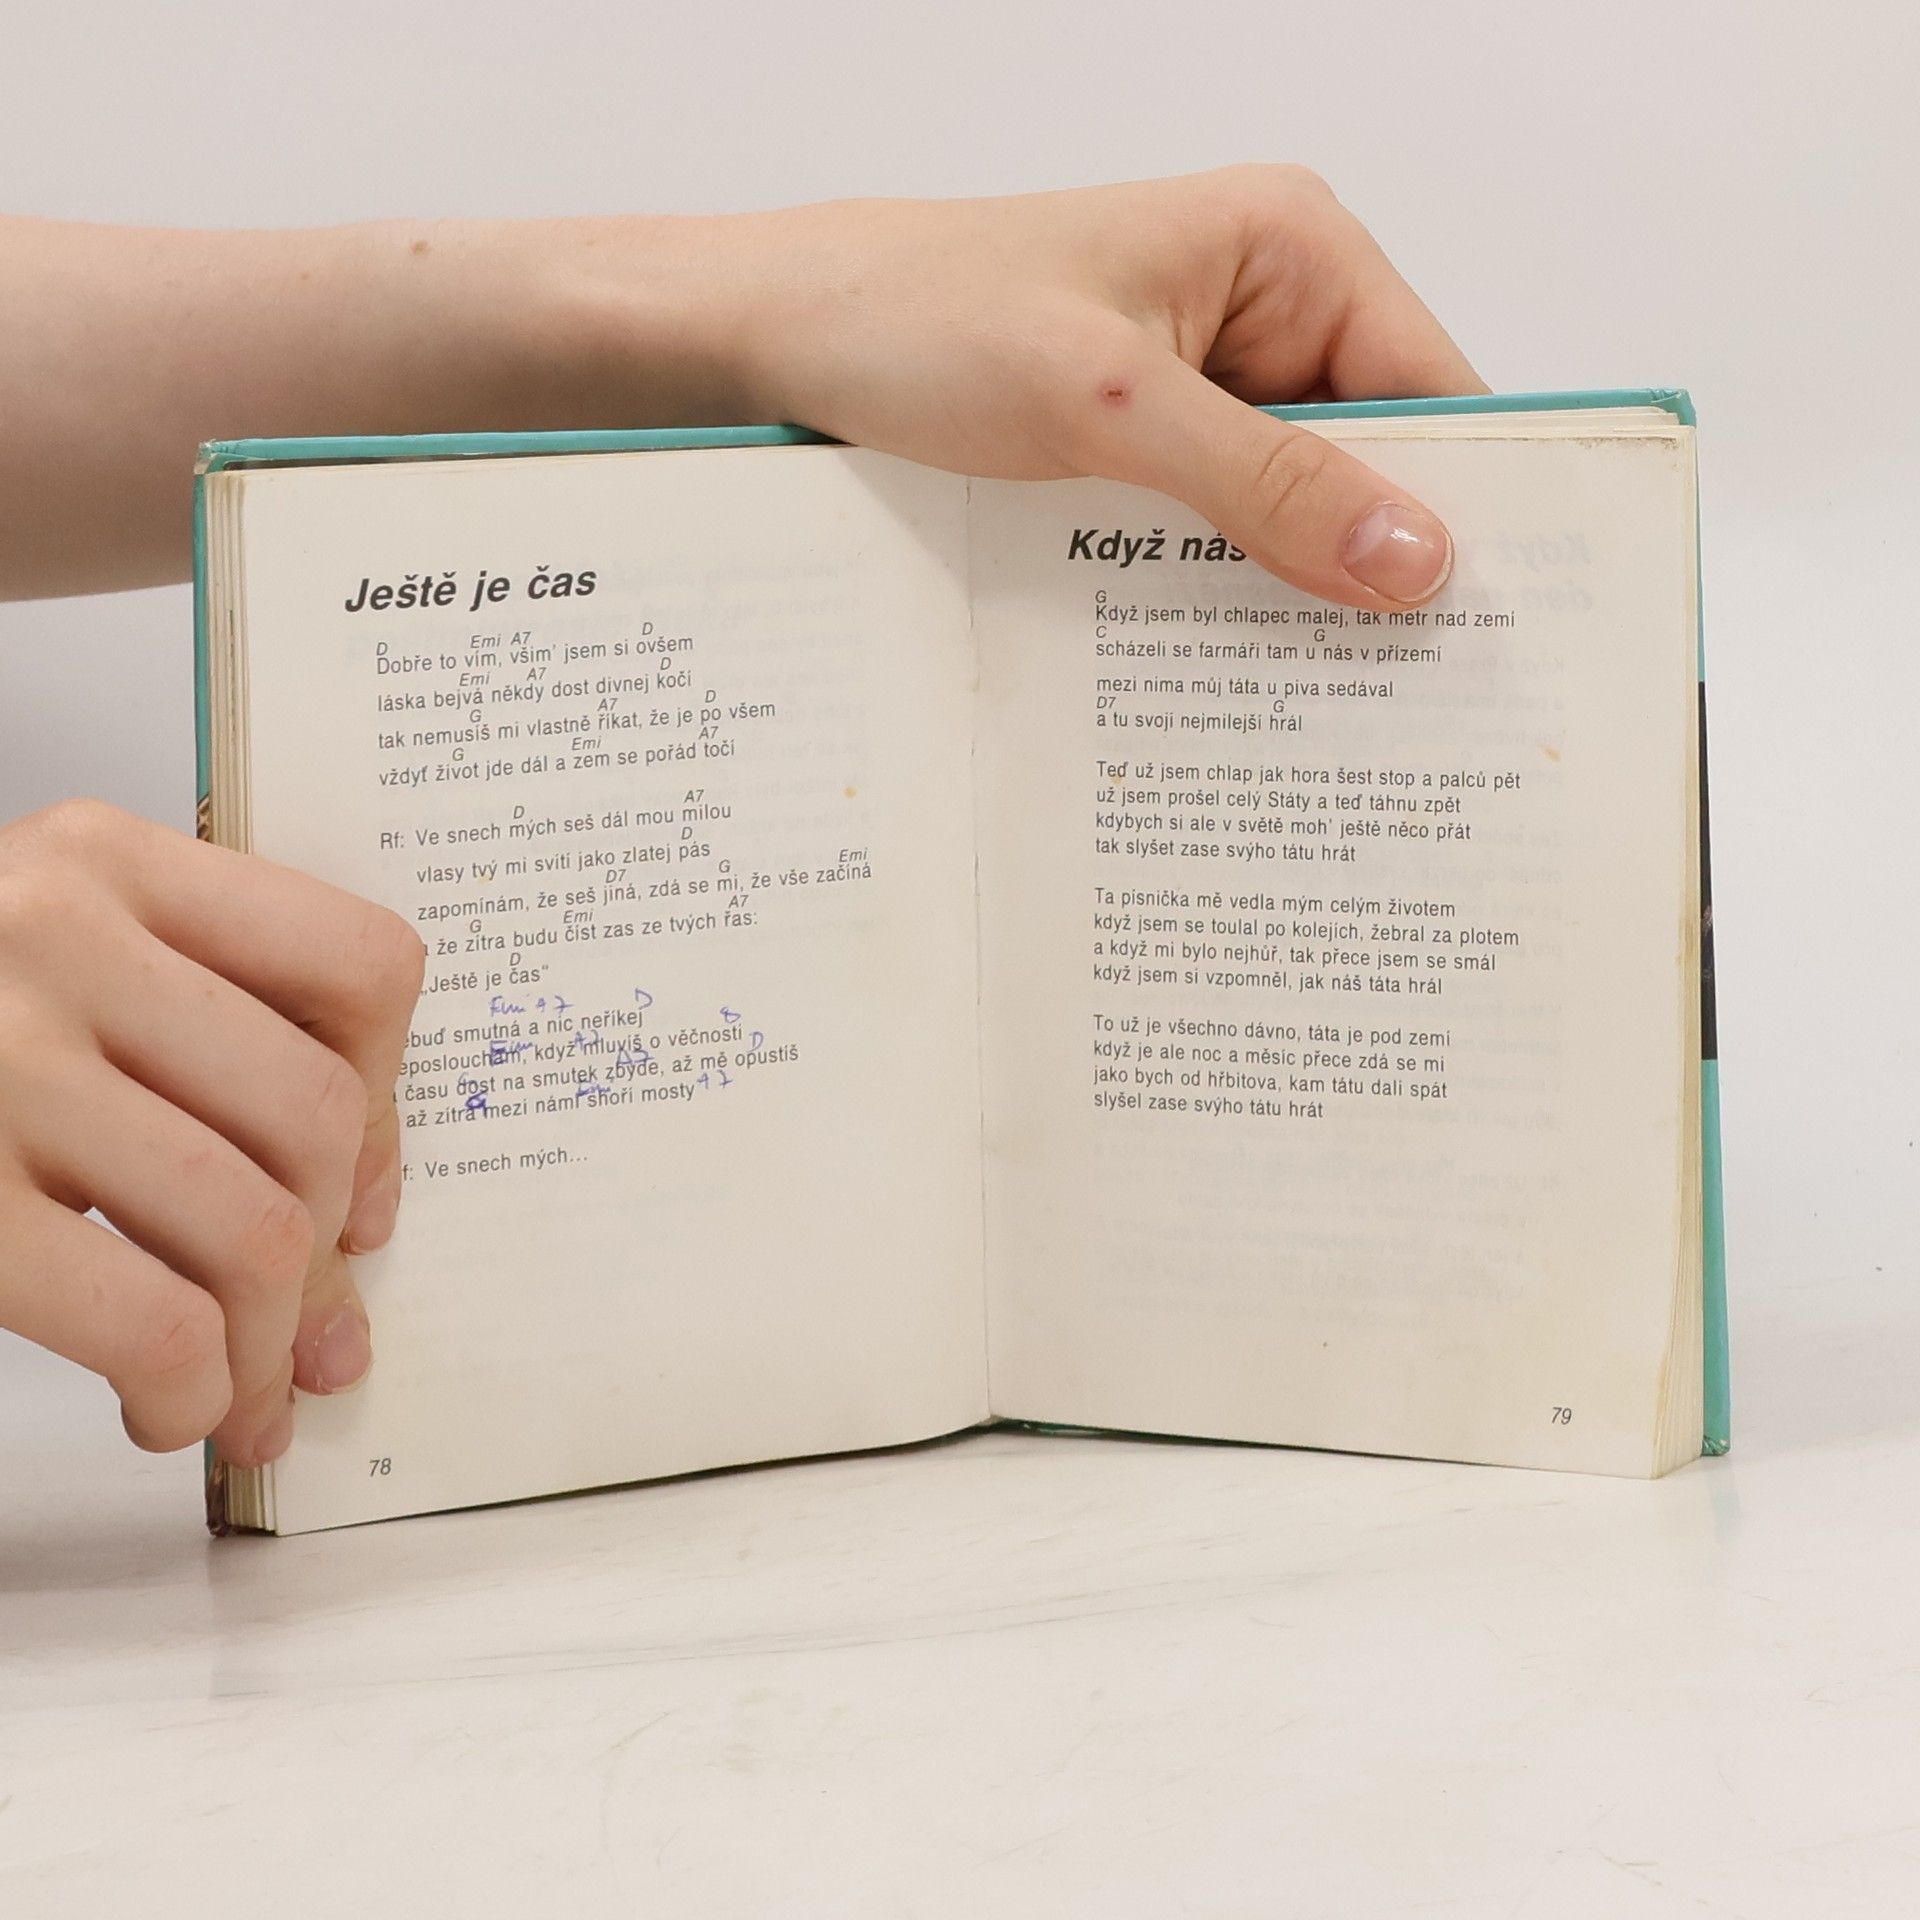 Ještě je čas
D Emi A7 D
Dobře to vím, všim' jsem si ovšem
Emi A7 D
láska bejvá někdy dost divnej kočí
G A7 D
tak nemusíš mi vlastně říkat, že je po všem
G Emi A7
vždyť život jde dál a zem se pořád točí
D A7
Rf: Ve snech mých seš dál mou milou
D
vlasy tvý mi svítí jako zlatej pás
D7 G Emi
zapomínám, že seš jiná, zdá se mi, že vše začíná
G Emi A7
že zítra budu číst zas ze tvých řas:
D
„Ještě je čas“
Emi A7 D
smutná a nic neříkej
Emi A7
když mluvíš o věčnosti
A7 D
času dost na smutek zbyde, až mě opustíš
G Emi A7
až zítra mezi námi shoří mosty
f: Ve snech mých...
78
Když nás
G
Když jsem byl chlapec malej, tak metr nad zemí
C G
scházeli se farmáři tam u nás v přízemí
mezi nima můj táta u piva sedával
D7 G
a tu svoji nejmilejší hrál
Teď už jsem chlap jak hora šest stop a palců pět
už jsem prošel celý Státy a teď táhnu zpět
kdybych si ale v světě moh' ještě něco přát
tak slyšet zase svýho tátu hrát
Ta písnička mě vedla mým celým životem
když jsem se toulal po kolejích, žebral za plotem
a když mi bylo nejhůř, tak přece jsem se smál
když jsem si vzpomněl, jak náš táta hrál
To už je všechno dávno, táta je pod zemí
když je ale noc a měsíc přece zdá se mi
jako bych od hřbitova, kam tátu dali spát
slyšel zase svýho tátu hrát
79